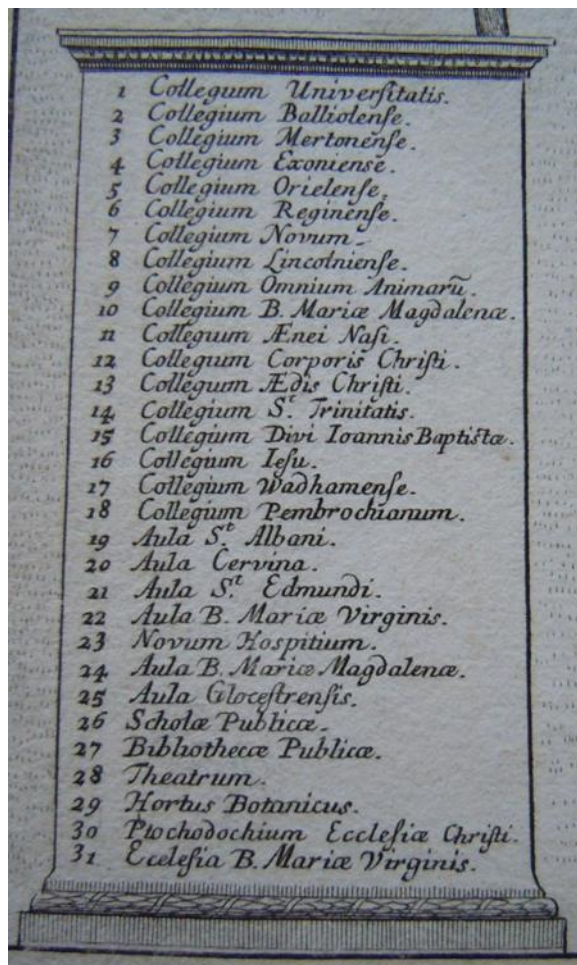 1 Collegium Univerſitatis.
2 Collegium Balliolenſe.
3 Collegium Mertonenſe.
4 Collegium Exoniense.
5 Collegium Orielenſe.
6 Collegium Reginenſe.
7 Collegium Novum.
8 Collegium Lincolnienſe.
9 Collegium Omnium Animarũ.
10 Collegium B. Mariæ Magdalenæ.
11 Collegium Ænei Naſi.
12 Collegium Corporis Chriſti.
13 Collegium Ædis Chriſti.
14 Collegium S.t Trinitatis.
15 Collegium Divi Ioannis Baptistæ.
16 Collegium Ieſu.
17 Collegium Wadhamenſe.
18 Collegium Pembrochianum.
19 Aula S.t Albani.
20 Aula Cervina.
21 Aula S.t Edmundi.
22 Aula B. Mariæ Virginis.
23 Novum Hoſpitium.
24 Aula B. Mariæ Magdalenæ.
25 Aula Gloceſtrenſis.
26 Scholæ Publicæ.
27 Bibliothecæ Publicæ.
28 Theatrum.
29 Hortus Botanicus.
30 Ptochodochium Eccleſiæ Chriſti.
31 Eccleſia B. Mariæ Virginis.